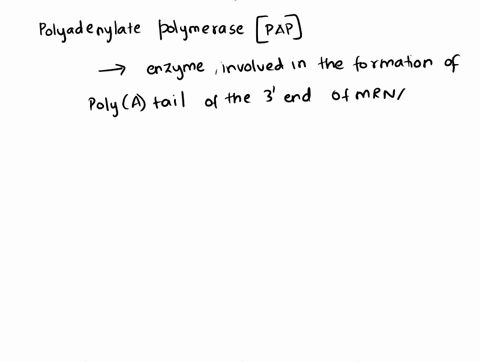 Polyadenylate polymerase [PAP]
→ enzyme, involved in the formation of
Poly(A) tail of the 3' end of MRN/